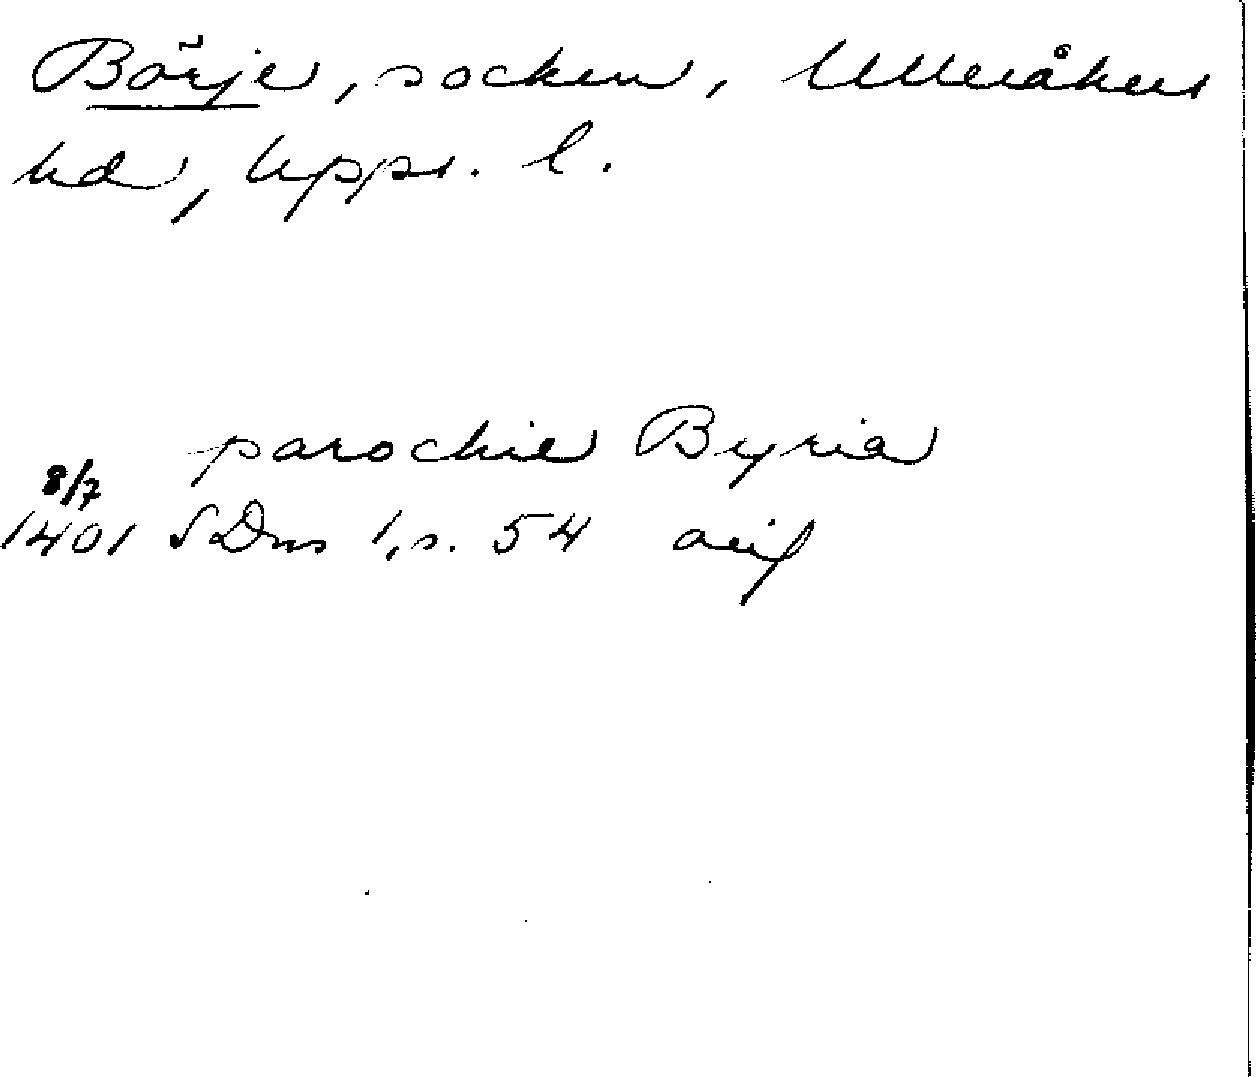 Börje, socken, Ulleråkers
hd, Upps. l.
parochie Byria
8/7
1401 SDns 1, s. 54 avif